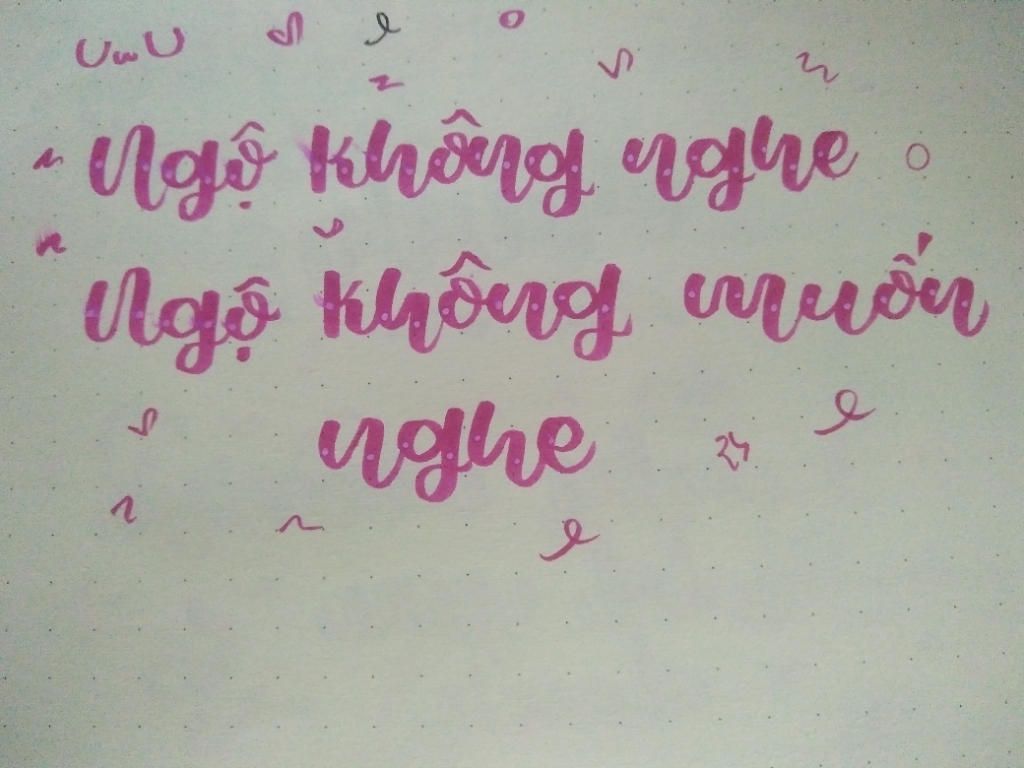 UwU
Ngộ không nghe
Ngộ không muốn
nghe